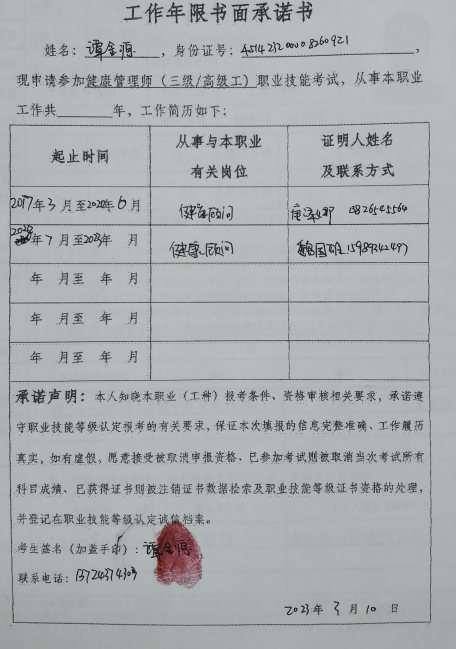 工作年限书面承诺书
姓名：谭金源，身份证号：451423200008260921，
现申请参加健康管理师（三级/高级工）职业技能考试，从事本职业
工作共 年，工作简历如下：
起止时间 从事与本职业有关岗位 证明人姓名及联系方式
2017年3月至2022年6月 健康顾问 15826545564
年7月至2023年 月 健康顾问 魏国雄 15989242497
年 月至 年 月
年 月至 年 月
年 月至 年 月
承诺声明：本人知晓本职业（工种）报考条件、资格审核相关要求，承诺遵
守职业技能等级认定报考的有关要求，保证本次填报的信息完整准确、工作履历
真实，如有虚假、愿意接受被取消申报资格、已参加考试则被取消当次考试所有
科目成绩、已获得证书则被注销证书数据检索及职业技能等级证书资格的处理，
并登记在职业技能等级认定诚信档案。
考生签名（加盖手印）：谭金源
联系电话：13724374303
2023年3月10日